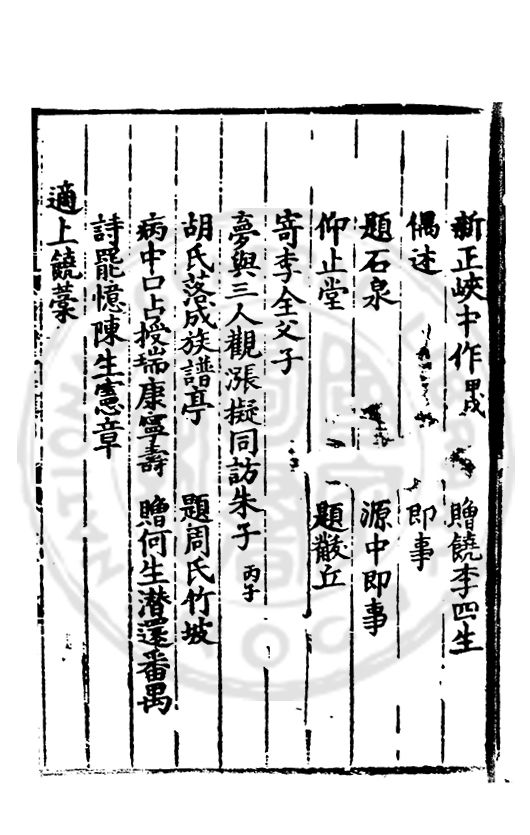 新正峽中作甲戌 贈饒李四生
偶述 即事
題石泉 源中即事
仰止堂 題㪚丘
寄李全父子
夢與三人觀漲擬同訪朱子丙子
胡氏落成族譜亭 題周氏竹坡
病中口占授瑞康寧壽 贈何生潛還番禺
詩罷憶陳生憲章
適上饒藁